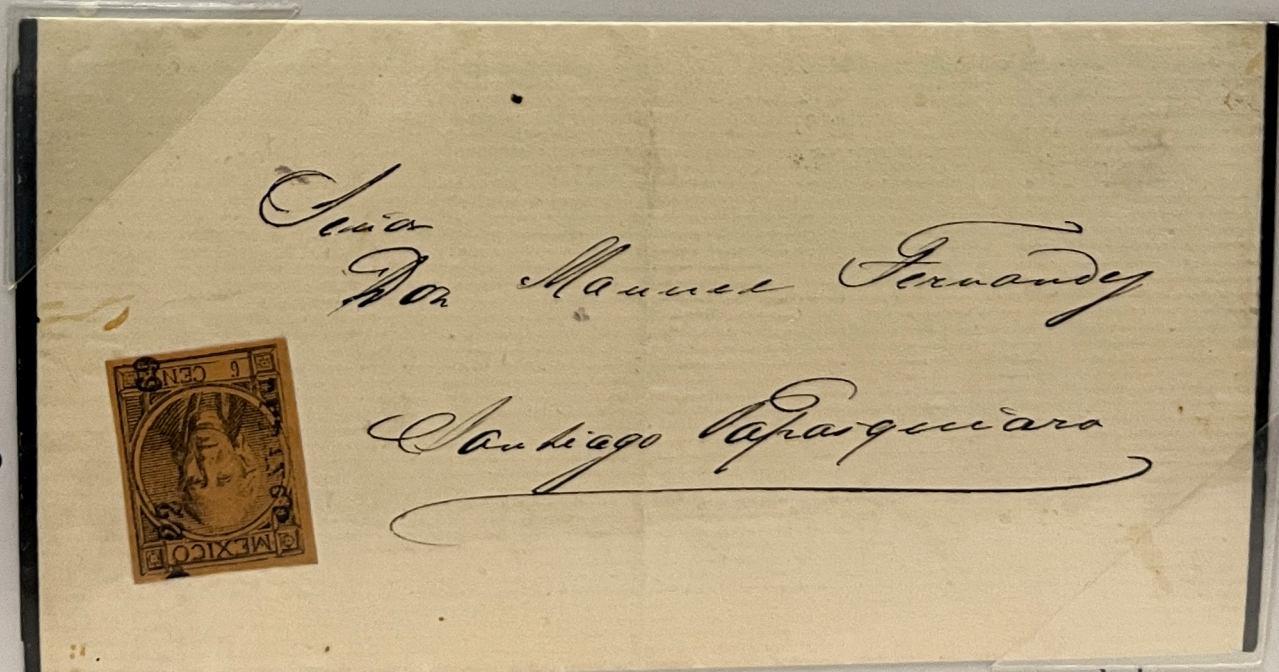 Señor
Don Manuel Fernandez
Santiago Papasquiaro
6 CEN
MEXICO